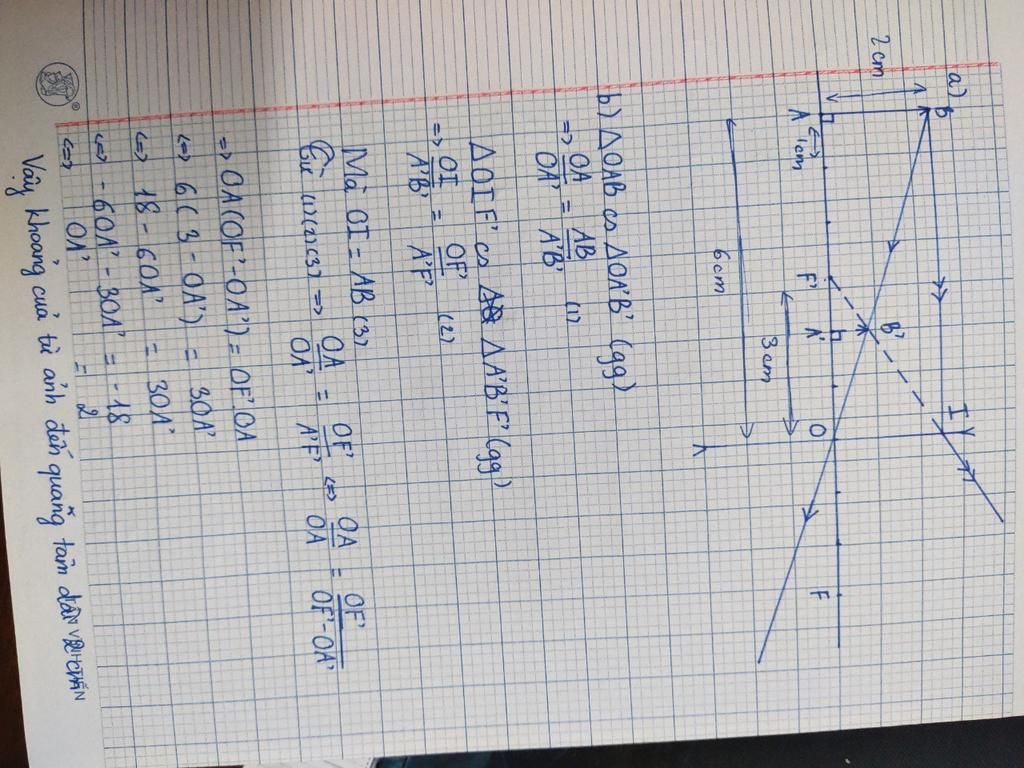 a)
B
I
2cm
B'
A
1cm
F'
A'
O
F
3cm
6cm
b) ΔOAB ᔕ ΔOA'B' (gg)
=> OA/OA' = AB/A'B' (1)
ΔOIF' ᔕ ΔA'B'F' (gg)
=> OI/A'B' = OF'/A'F' (2)
Mà OI = AB (3)
Từ (1)(2)(3) => OA/OA' = OF'/A'F' <=> OA/OA = OF'/OF'-OA'
=> OA(OF'-OA') = OF'.OA
<=> 6(3-OA') = 3OA'
<=> 18-6OA' = 3OA'
<=> -6OA'-3OA' = -18
<=> OA' = 2
Vậy khoảng của từ ảnh đến quang tâm
®